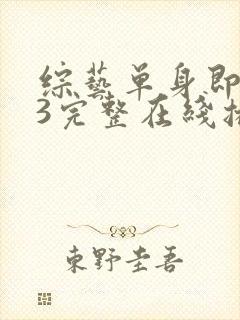 綜藝單身即
3完整在綫播
東野圭吾